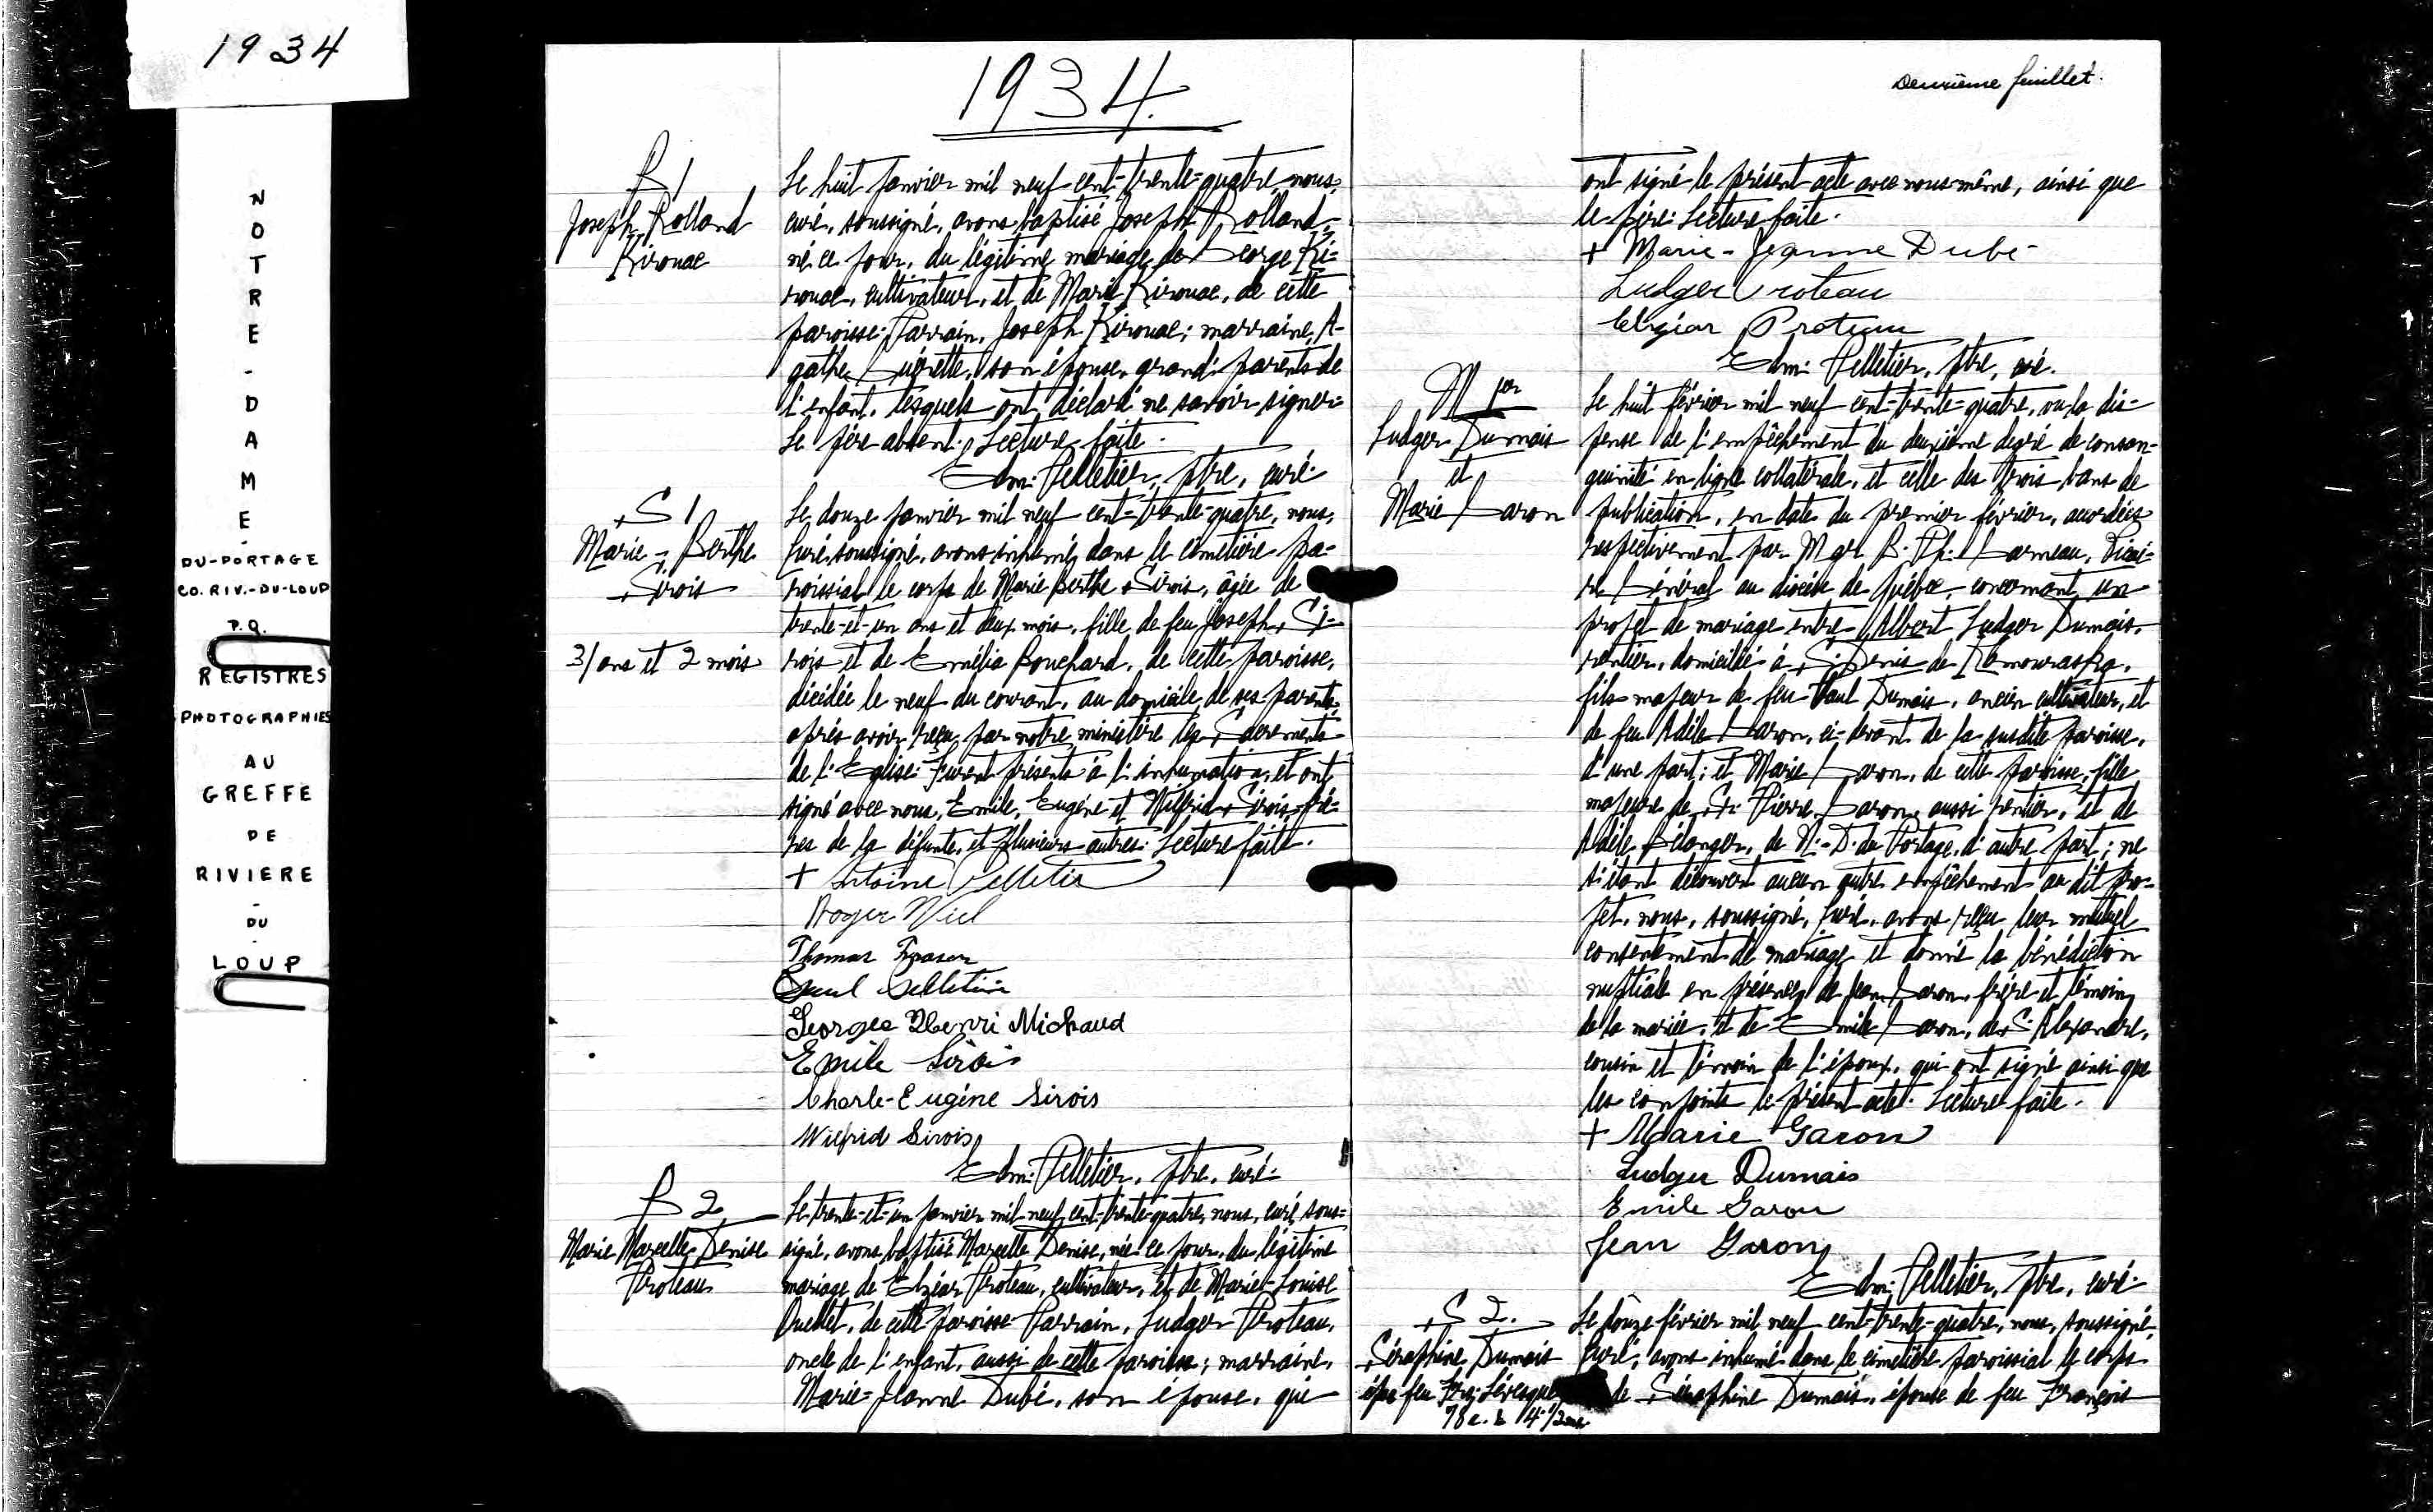 1934
NOTRE-DAME-
DU-PORTAGE
CO. RIV.-DU-LOUP
P.Q.
REGISTRES
PHOTOGRAPHIES
AU
GREFFE
DE
RIVIERE
-
DU
-
LOUP
1934.
B 1
Joseph Rolland
Kirouac
Le huit janvier mil neuf cent-trente-quatre, nous,
curé, soussigné, avons baptisé Joseph Rolland,
né ce jour, du légitime mariage de George Ki-
rouac, cultivateur, et de Marie Kirouac, de cette
paroisse. Parrain, Joseph Kirouac; marraine, A-
gathe Guérette, son épouse, grands parents de
l'enfant, lesquels ont déclaré ne savoir signer.
Le père absent. Lecture faite.
Edm. Pelletier, ptre, curé.
S 1
Marie-Berthe
Sirois
31 ans et 2 mois
Le douze janvier mil neuf cent-trente-quatre, nous,
curé, soussigné, avons inhumé dans le cimetière pa-
roissial le corps de Marie Berthe Sirois, âgée de
trente-et-un ans et deux mois, fille de feu Joseph Si-
rois et de Emélia Bouchard, de cette paroisse,
décédée le neuf du courant, au domicile de ses parents,
après avoir reçu par notre ministère les Sacrements
de l'Eglise. Furent présents à l'inhumation, et ont
signé avec nous, Emile, Eugène et Wilfrid Sirois, frè-
res de la défunte, et plusieurs autres. Lecture faite.
+ Antoine Pelletier
Roger Viel
Thomas Fraser
Paul Pelletier
Georges Henri Michaud
Emile Sirois
Charle-Eugène Sirois
Wilfrid Sirois
Edm. Pelletier, ptre, curé.
B 2
Marie Marcelle Denise
Proteau
Le trente-et-un janvier mil neuf cent-trente-quatre, nous, curé, sous-
signé, avons baptisé Marcelle Denise, née ce jour, du légitime
mariage de Elzéar Proteau, cultivateur, et de Marie-Louise
Ouellet, de cette paroisse. Parrain, Ludger Proteau,
oncle de l'enfant, aussi de cette paroisse; marraine,
Marie-Jeanne Dubé, son épouse, qui
Deuxième feuillet.
ont signé le présent acte avec nous-même, ainsi que
le père. Lecture faite.
+ Marie-Jeanne Dubé
Ludger Proteau
Elzéar Proteau
Edm. Pelletier, ptre, curé.
M 1er
Ludger Dumais
et
Marie Garon
Le huit février mil neuf cent-trente-quatre, vu la dis-
pense de l'empêchement du deuxième degré de consan-
guinité en ligne collatérale, et celle des trois bans de
publication, en date du premier février, accordées
respectivement par Mgr B. Ph. Garneau, Vicai-
re Général au diocèse de Québec, concernant un
projet de mariage entre Albert Ludger Dumais,
rentier, domicilié à S. Denis de Kamouraska,
fils majeur de feu Paul Dumais, ancien cultivateur, et
de feu Adèle Garon, ci-devant de la susdite paroisse,
d'une part; et Marie Garon, de cette paroisse, fille
majeure de Sr. Pierre Garon, aussi rentier, et de
Adèle Bélanger, de N.-D. du Portage, d'autre part; ne
s'étant découvert aucun autre empêchement au dit pro-
jet, nous, soussigné, curé, avons reçu leur mutuel
consentement de mariage et donné la bénédiction
nuptiale en présence de Jean Garon, frère et témoin
de la mariée, et de Emile Garon, de S. Alexandre,
cousin et témoin de l'époux, qui ont signé ainsi que
les conjoints le présent acte. Lecture faite.
+ Marie Garon
Ludger Dumais
Emile Garon
Jean Garon
Edm. Pelletier, ptre, curé.
S 2.
Séraphine Dumais
épse feu Frs. Lévesque
78 a. &
Le douze février mil neuf cent-trente-quatre, nous, soussigné,
curé, avons inhumé dans le cimetière paroissial le corps
de Séraphine Dumais, épouse de feu François